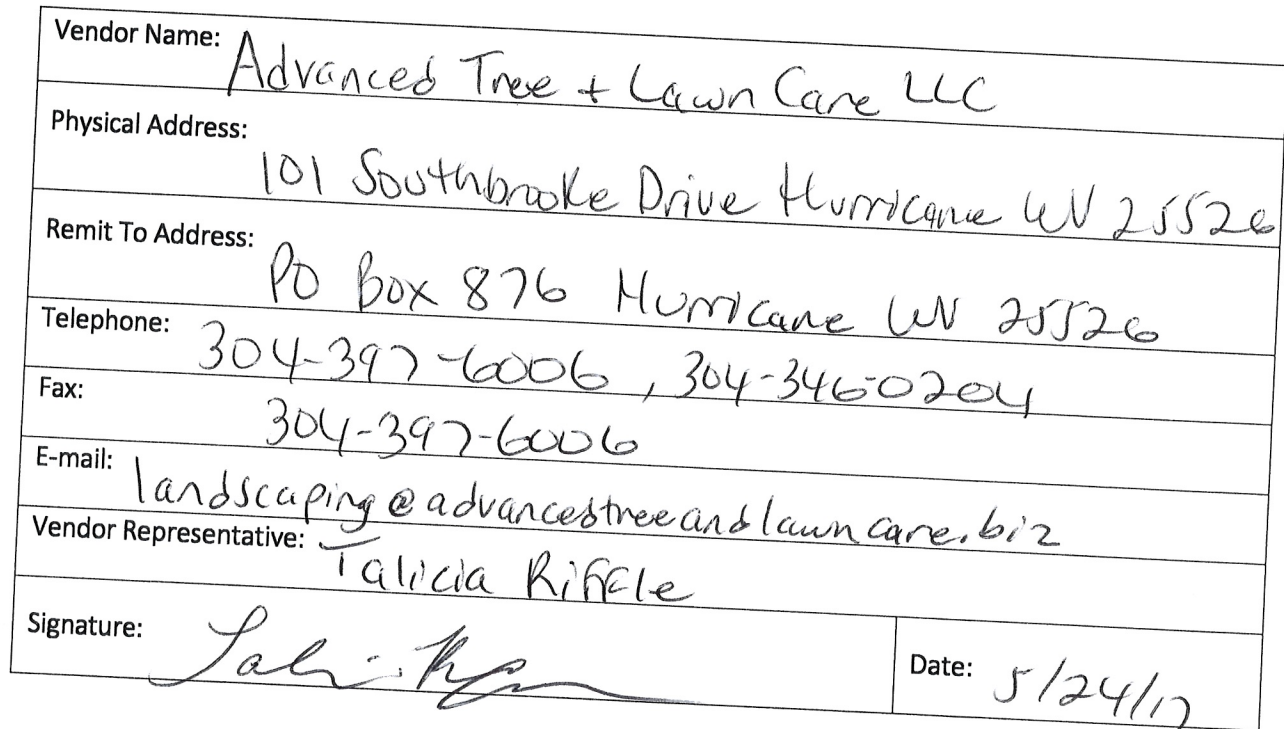 Vendor Name: Advanced Tree + Lawn Care LLC
Physical Address:
101 Southbrooke Drive Hurricane WV 25526
Remit To Address:
PO Box 876 Hurricane WV 25526
Telephone: 304-397-6006, 304-346-0204
Fax: 304-397-6006
E-mail: landscaping@advancedtreeandlawncare.biz
Vendor Representative: Talicia Riffle
Signature:
Date: 5/24/17